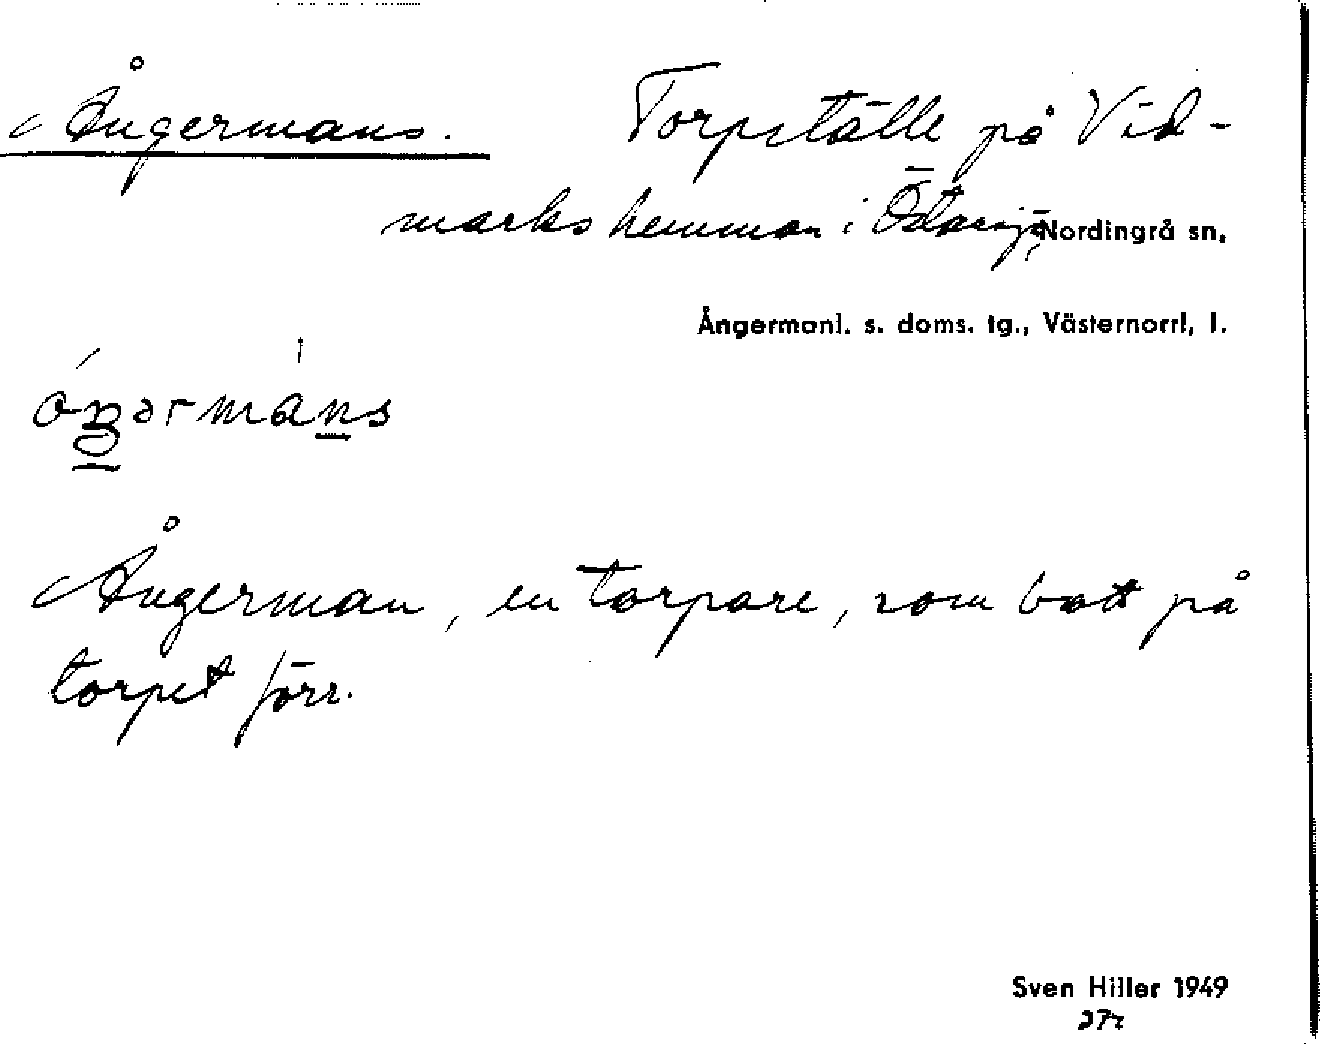 Ångermans. Torpställe på Vid-
markshemman i Östansjö, Nordingrå sn,
Ångermanl. s. doms. tg., Västernorrl. l.
Ångerman, en torpare, som bott på
torpet förr.
Sven Hiller 1949